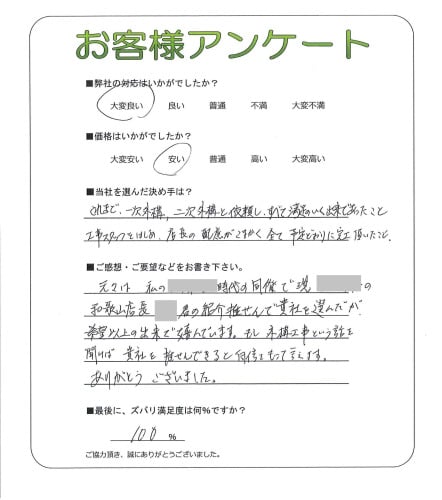 お客様アンケート
■弊社の対応はいかがでしたか？
大変良い 良い 普通 不満 大変不満
■価格はいかがでしたか？
大変安い 安い 普通 高い 大変高い
■当社を選んだ決め手は？
これまで、一次外構、二次外構と依頼し、すべて満足のいく出来であったこと
工事スタッフをはじめ、店長の配慮がこまやかく全て予定どおりに完工頂いたこと。
■ご感想・ご要望などをお書き下さい。
元々は 私の 時代の同僚で現 の
和歌山店長 君の紹介推せんで貴社を選んだが
希望以上の出来で喜んでいます。もし外構工事という話を
聞けば 貴社を 推せんできると自信をもって言えます。
ありがとう ございました。
■最後に、ズバリ満足度は何%ですか？
100 %
ご協力頂き、誠にありがとうございました。